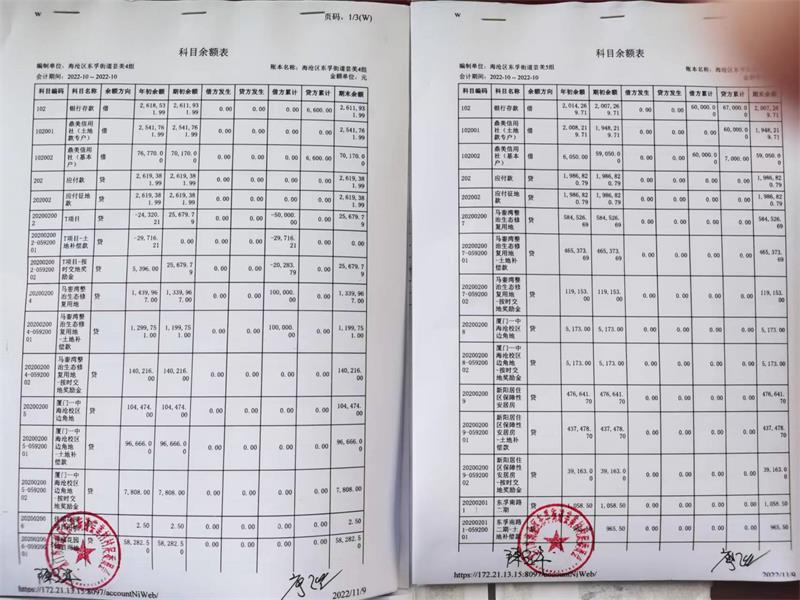 W
页码, 1/3(W)
科目余额表
编制单位: 海沧区东孚街道芸美4组
账本名称: 海沧区东孚街道芸美4组
会计期间: 2022-10 -- 2022-10
金额单位: 元
科目编码 科目名称 余额方向 年初余额 期初余额 借方发生 贷方发生 借方累计 贷方累计 期末余额
102 银行存款 借 2,618,531.99 2,611,931.99 0.00 0.00 0.00 6,600.00 2,611,931.99
102001 鼎美信用社(土地款专户) 借 2,541,761.99 2,541,761.99 0.00 0.00 0.00 0.00 2,541,761.99
102002 鼎美信用社(基本户) 借 76,770.00 70,170.00 0.00 0.00 0.00 6,600.00 70,170.00
202 应付款 贷 2,619,381.99 2,619,381.99 0.00 0.00 0.00 0.00 2,619,381.99
202002 应付征地款 贷 2,619,381.99 2,619,381.99 0.00 0.00 0.00 0.00 2,619,381.99
202002002 T项目 贷 -24,320.21 25,679.79 0.00 0.00 -50,000.00 0.00 25,679.79
202002002-05920001 T项目-土地补偿款 贷 -29,716.21 0.00 0.00 0.00 -29,716.21 0.00 0.00
202002002-05920002 T项目-按时交地奖励金 贷 5,396.00 25,679.79 0.00 0.00 -20,283.79 0.00 25,679.79
202002004 马銮湾整治生态修复用地 贷 1,439,967.00 1,339,967.00 0.00 0.00 100,000.00 0.00 1,339,967.00
202002004-05920001 马銮湾整治生态修复用地-土地补偿款 贷 1,299,751.00 1,199,751.00 0.00 0.00 100,000.00 0.00 1,199,751.00
202002004-05920002 马銮湾整治生态修复用地-按时交地奖励金 贷 140,216.00 140,216.00 0.00 0.00 0.00 0.00 140,216.00
202002005 厦门一中海沧校区边角地 贷 104,474.00 104,474.00 0.00 0.00 0.00 0.00 104,474.00
202002005-05920001 厦门一中海沧校区边角地-土地补偿款 贷 96,666.00 96,666.00 0.00 0.00 0.00 0.00 96,666.00
202002005-05920002 厦门一中海沧校区边角地-按时交地奖励金 贷 7,808.00 7,808.00 0.00 0.00 0.00 0.00 7,808.00
2.50 2.50 0.00 0.00 0.00 0.00 2.50
58,282.50 58,282.50 0.00 0.00 0.00 0.00 58,282.50
https://172.21.13.15:8097/accountNjWeb/
2022/11/9
W
科目余额表
编制单位: 海沧区东孚街道芸美5组
账本名称: 海沧区东孚街道芸美5组
会计期间: 2022-10 -- 2022-10
科目编码 科目名称 余额方向 年初余额 期初余额 借方发生 贷方发生 借方累计 贷方累计 期末余额
102 银行存款 借 2,014,269.71 2,007,269.71 0.00 0.00 60,000.00 67,000.00 2,007,269.71
102001 鼎美信用社(土地款专户) 借 2,008,219.71 1,948,219.71 0.00 0.00 0.00 60,000.00 1,948,219.71
102002 鼎美信用社(基本户) 借 6,050.00 59,050.00 0.00 0.00 60,000.00 7,000.00 59,050.00
202 应付款 贷 1,986,820.79 1,986,820.79 0.00 0.00 0.00 0.00 1,986,820.79
202002 应付征地款 贷 1,986,820.79 1,986,820.79 0.00 0.00 0.00 0.00 1,986,820.79
202002007 马銮湾整治生态修复用地 贷 584,526.69 584,526.69 0.00 0.00 0.00 0.00 584,526.69
202002007-05920001 马銮湾整治生态修复用地-土地补偿款 贷 465,373.69 465,373.69 0.00 0.00 0.00 0.00 465,373.69
202002007-05920002 马銮湾整治生态修复用地-按时交地奖励金 贷 119,153.00 119,153.00 0.00 0.00 0.00 0.00 119,153.00
202002008 厦门一中海沧校区边角地 贷 5,173.00 5,173.00 0.00 0.00 0.00 0.00 5,173.00
202002008-05920002 厦门一中海沧校区边角地-按时交地奖励金 贷 5,173.00 5,173.00 0.00 0.00 0.00 0.00 5,173.00
202002009 新阳居住区保障性安居房 贷 476,641.70 476,641.70 0.00 0.00 0.00 0.00 476,641.70
202002009-05920001 新阳居住区保障性安居房-土地补偿款 贷 437,478.70 437,478.70 0.00 0.00 0.00 0.00 437,478.70
202002009-05920002 新阳居住区保障性安居房-按时交地奖励金 贷 39,163.00 39,163.00 0.00 0.00 0.00 0.00 39,163.00
202002011 东孚南路二期 贷 1,058.50 1,058.50 0.00 0.00 0.00 0.00 1,058.50
东孚南路二期-土地补偿款 965.50 0.00 0.00 0.00 0.00 965.50
https://172.21.13.15:8097/accountNjWeb/
2022/11/9